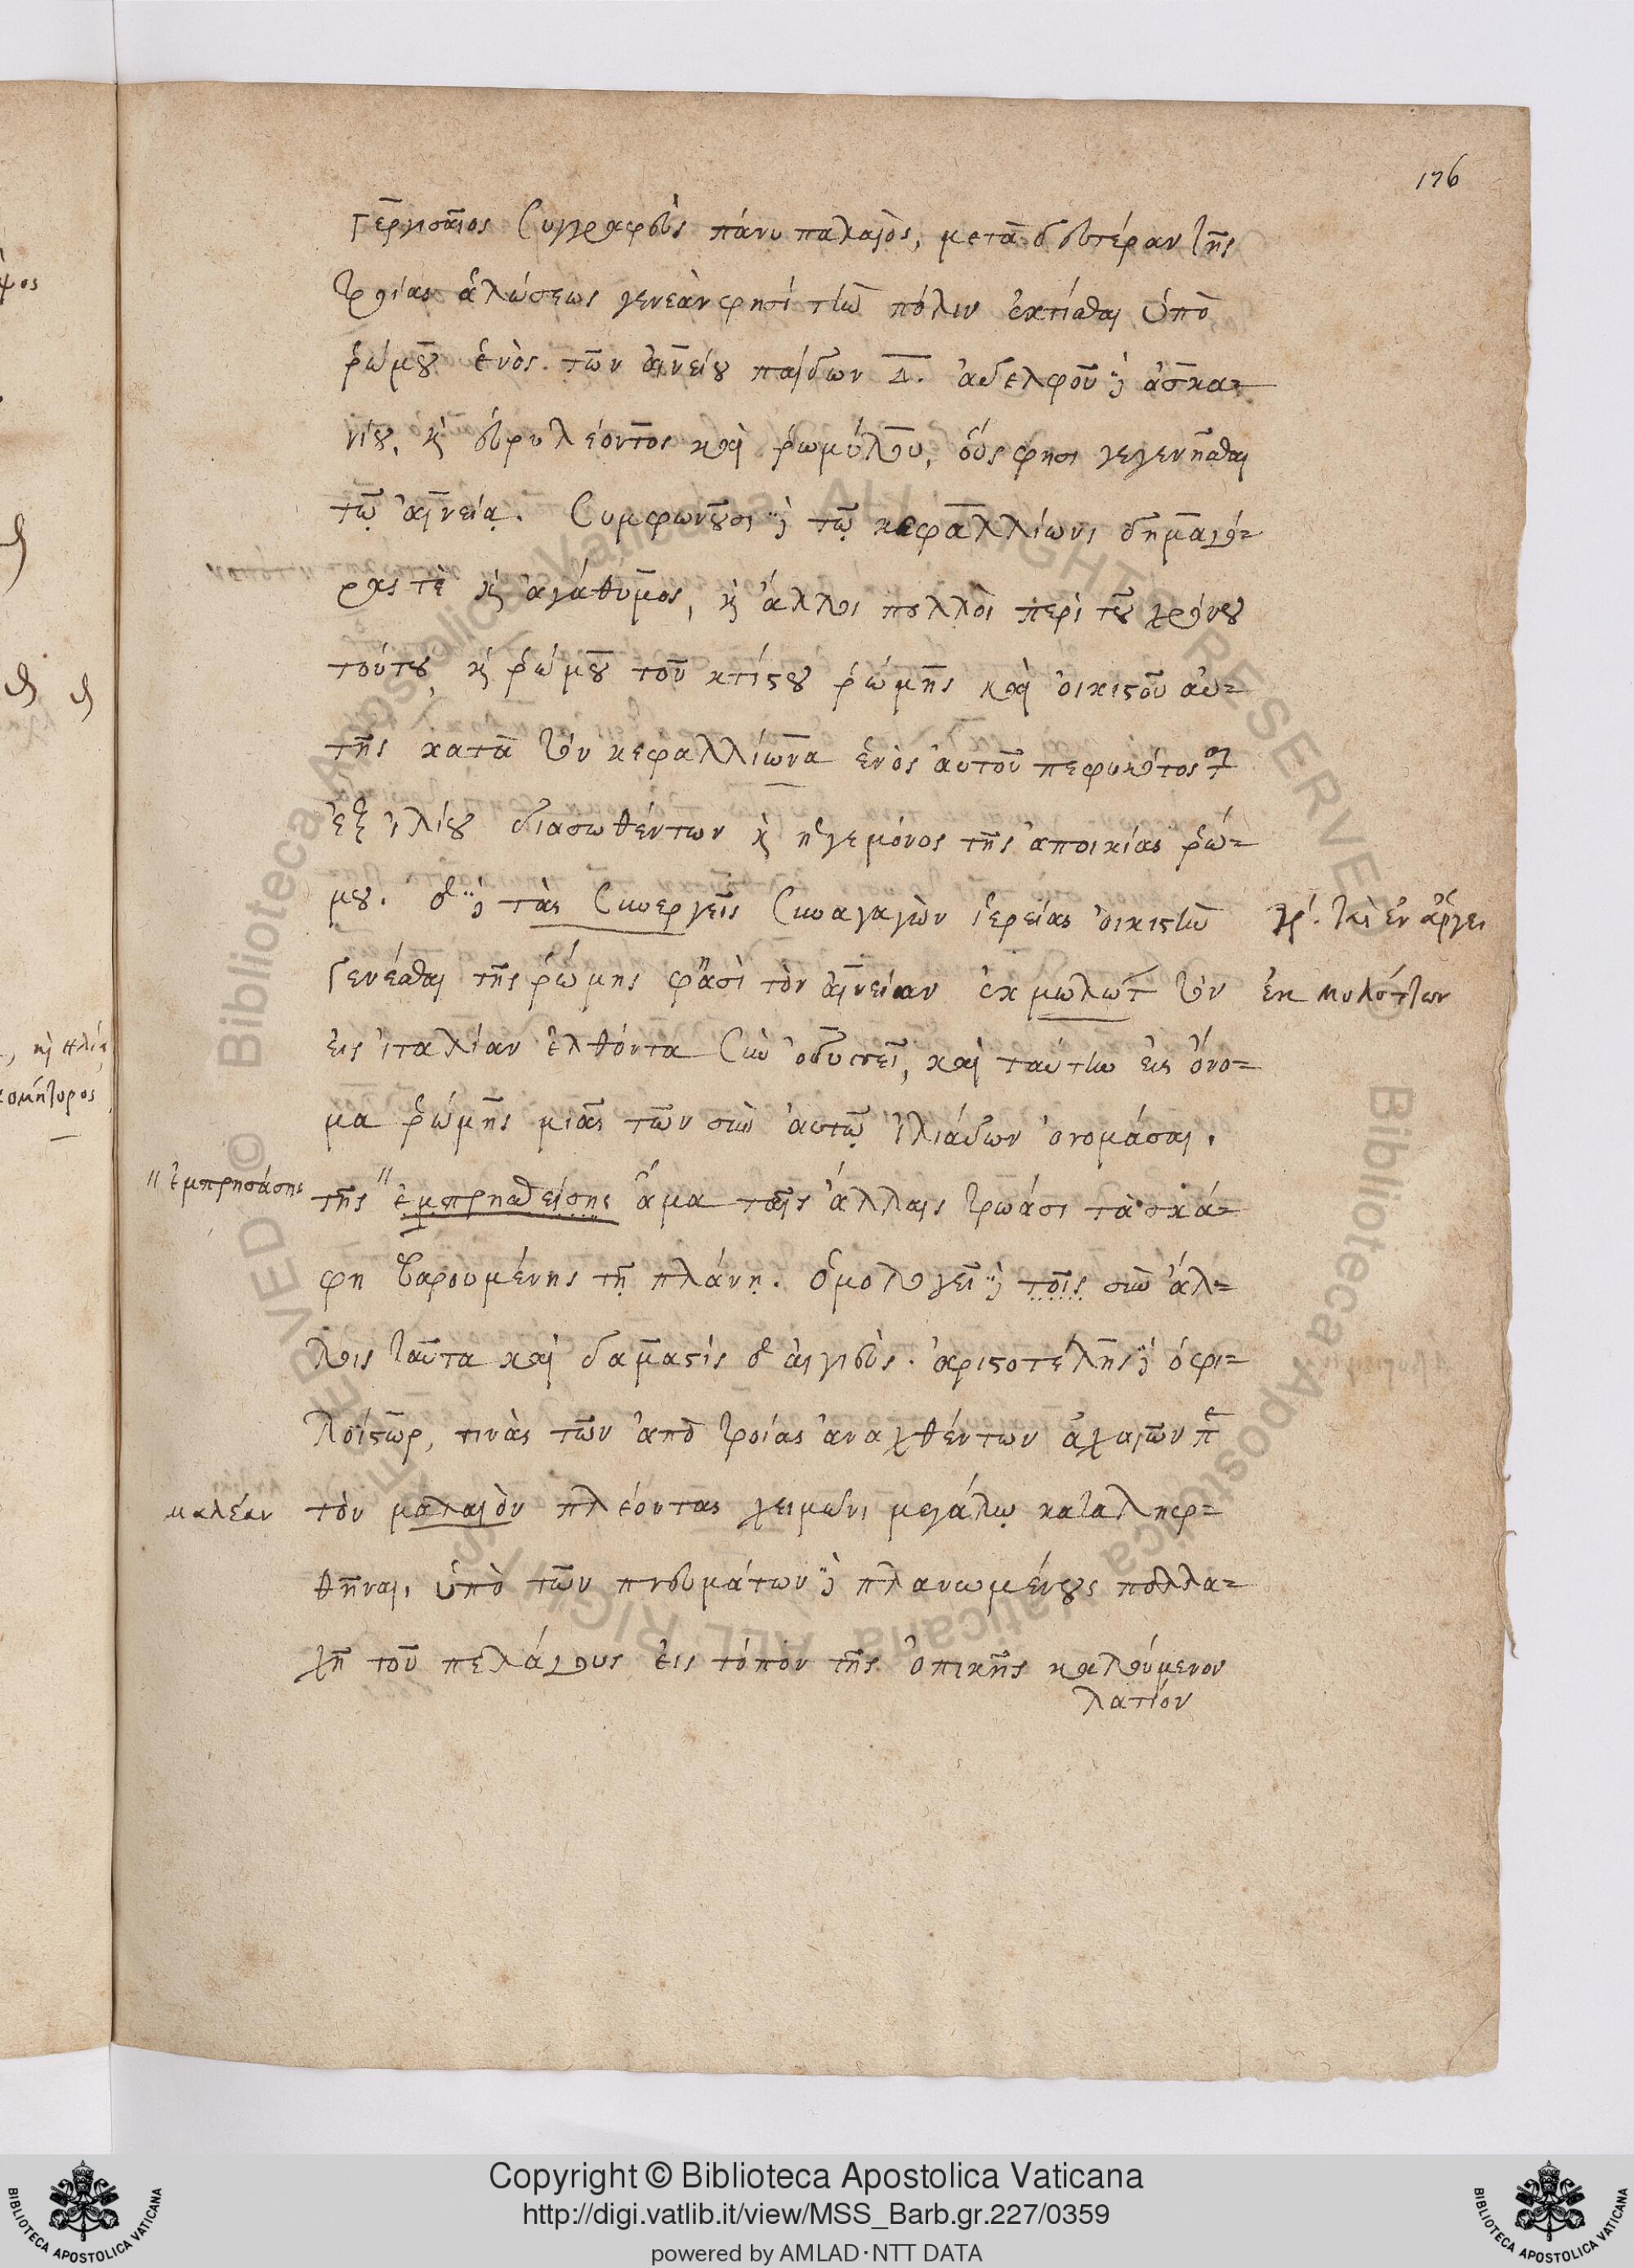 176
Γεργισαῖος Συγγραφεὺς πάνυ παλαιὸς, μετὰ δευτέραν τῆς
τροίας ἁλώσεως γενεὰν φησί τὴν πόλιν ἐκτίσθαι ὑπὸ
ῥώμου ἑνὸς τῶν αἰνείου παίδων Δ. ἀδελφοῦ δὲ ἀσκα=
νίου, καὶ εὐρυλέοντος καὶ ῥωμύλου, οὕς φησι γεγενῆσθαι
τῷ αἰνείᾳ. Συμφωνοῦσι δὲ τῷ κεφαλλίωνι δημαγό=
ρας τὲ καὶ ἀγάθυμος, καὶ ἄλλοι πολλοὶ περὶ τοῦ χρόνου
τούτου, καὶ ῥώμου τοῦ κτίστου ῥώμης καὶ οἰκιστοῦ αὐ=
τῆς κατὰ τὸν κεφαλλίωνα ἑνὸς αὐτοῦ πεφυκότος τῶν
ἐξ ἰλίου διασωθέντων καὶ ἡγεμόνος τῆς ἀποικίας ῥώ=
μου. ὁ δὲ τὰς Συνεργεῖς Συναγαγὼν ἱερείας οἰκιστὴν
γρ. τὰς ἐν ἄργει
Γενέσθαι τῆς ῥώμης φησὶ τὸν αἰνείαν ἐκ μωλωτ τὸν
ἐκ μολόττων
εἰς ἰταλίαν ἐλθόντα Σὺν ὀδυσσεῖ, καὶ ταύτην εἰς ὄνο=
μα ῥώμης μιᾶς τῶν σὺν αὐτῷ ἰλιάδων ὀνομάσαι.
" ἐμπρησάσης
τῆς " ἐμπρησθείσης ἅμα ταῖς ἄλλαις τρωάσι τὰ σκά=
φη βαρουμένης τῇ πλάνῃ. ὁμολογεῖ δὲ τοῖς σὺν ἄλ=
λοις ταῦτα καὶ δαμαστὶς ὁ αἰγιεὺς. ἀριστοτέλης δὲ ὁ φι=
λοΐστωρ, τινὰς τῶν ἀπὸ τροίας ἀναχθέντων ἀχαιῶν περὶ
μαλέαν
τὸν μαλαιὸν πλέοντας χειμῶνι μεγάλῳ καταληφ=
θῆναι, ὑπὸ τῶν πνευμάτων δὲ πλανωμένους πολλα=
χῇ τοῦ πελάγους εἰς τόπον τῆς ὀπικῆς καλούμενον
λατίον
Copyright © Biblioteca Apostolica Vaticana
http://digi.vatlib.it/view/MSS_Barb.gr.227/0359
powered by AMLAD·NTT DATA